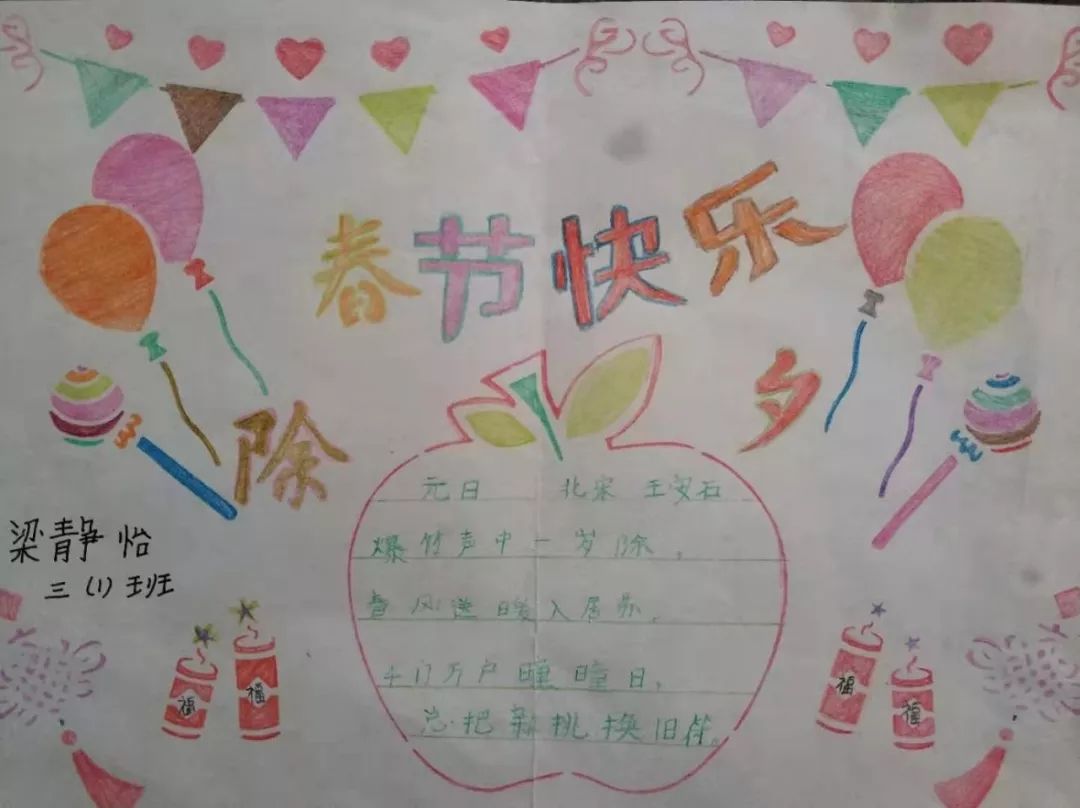 春节快乐
除夕
梁静怡
三(1)班
元日 北宋 王安石
爆竹声中一岁除，
春风送暖入屠苏，
千门万户曈曈日，
总把新挑换旧符。
福
福
福
福